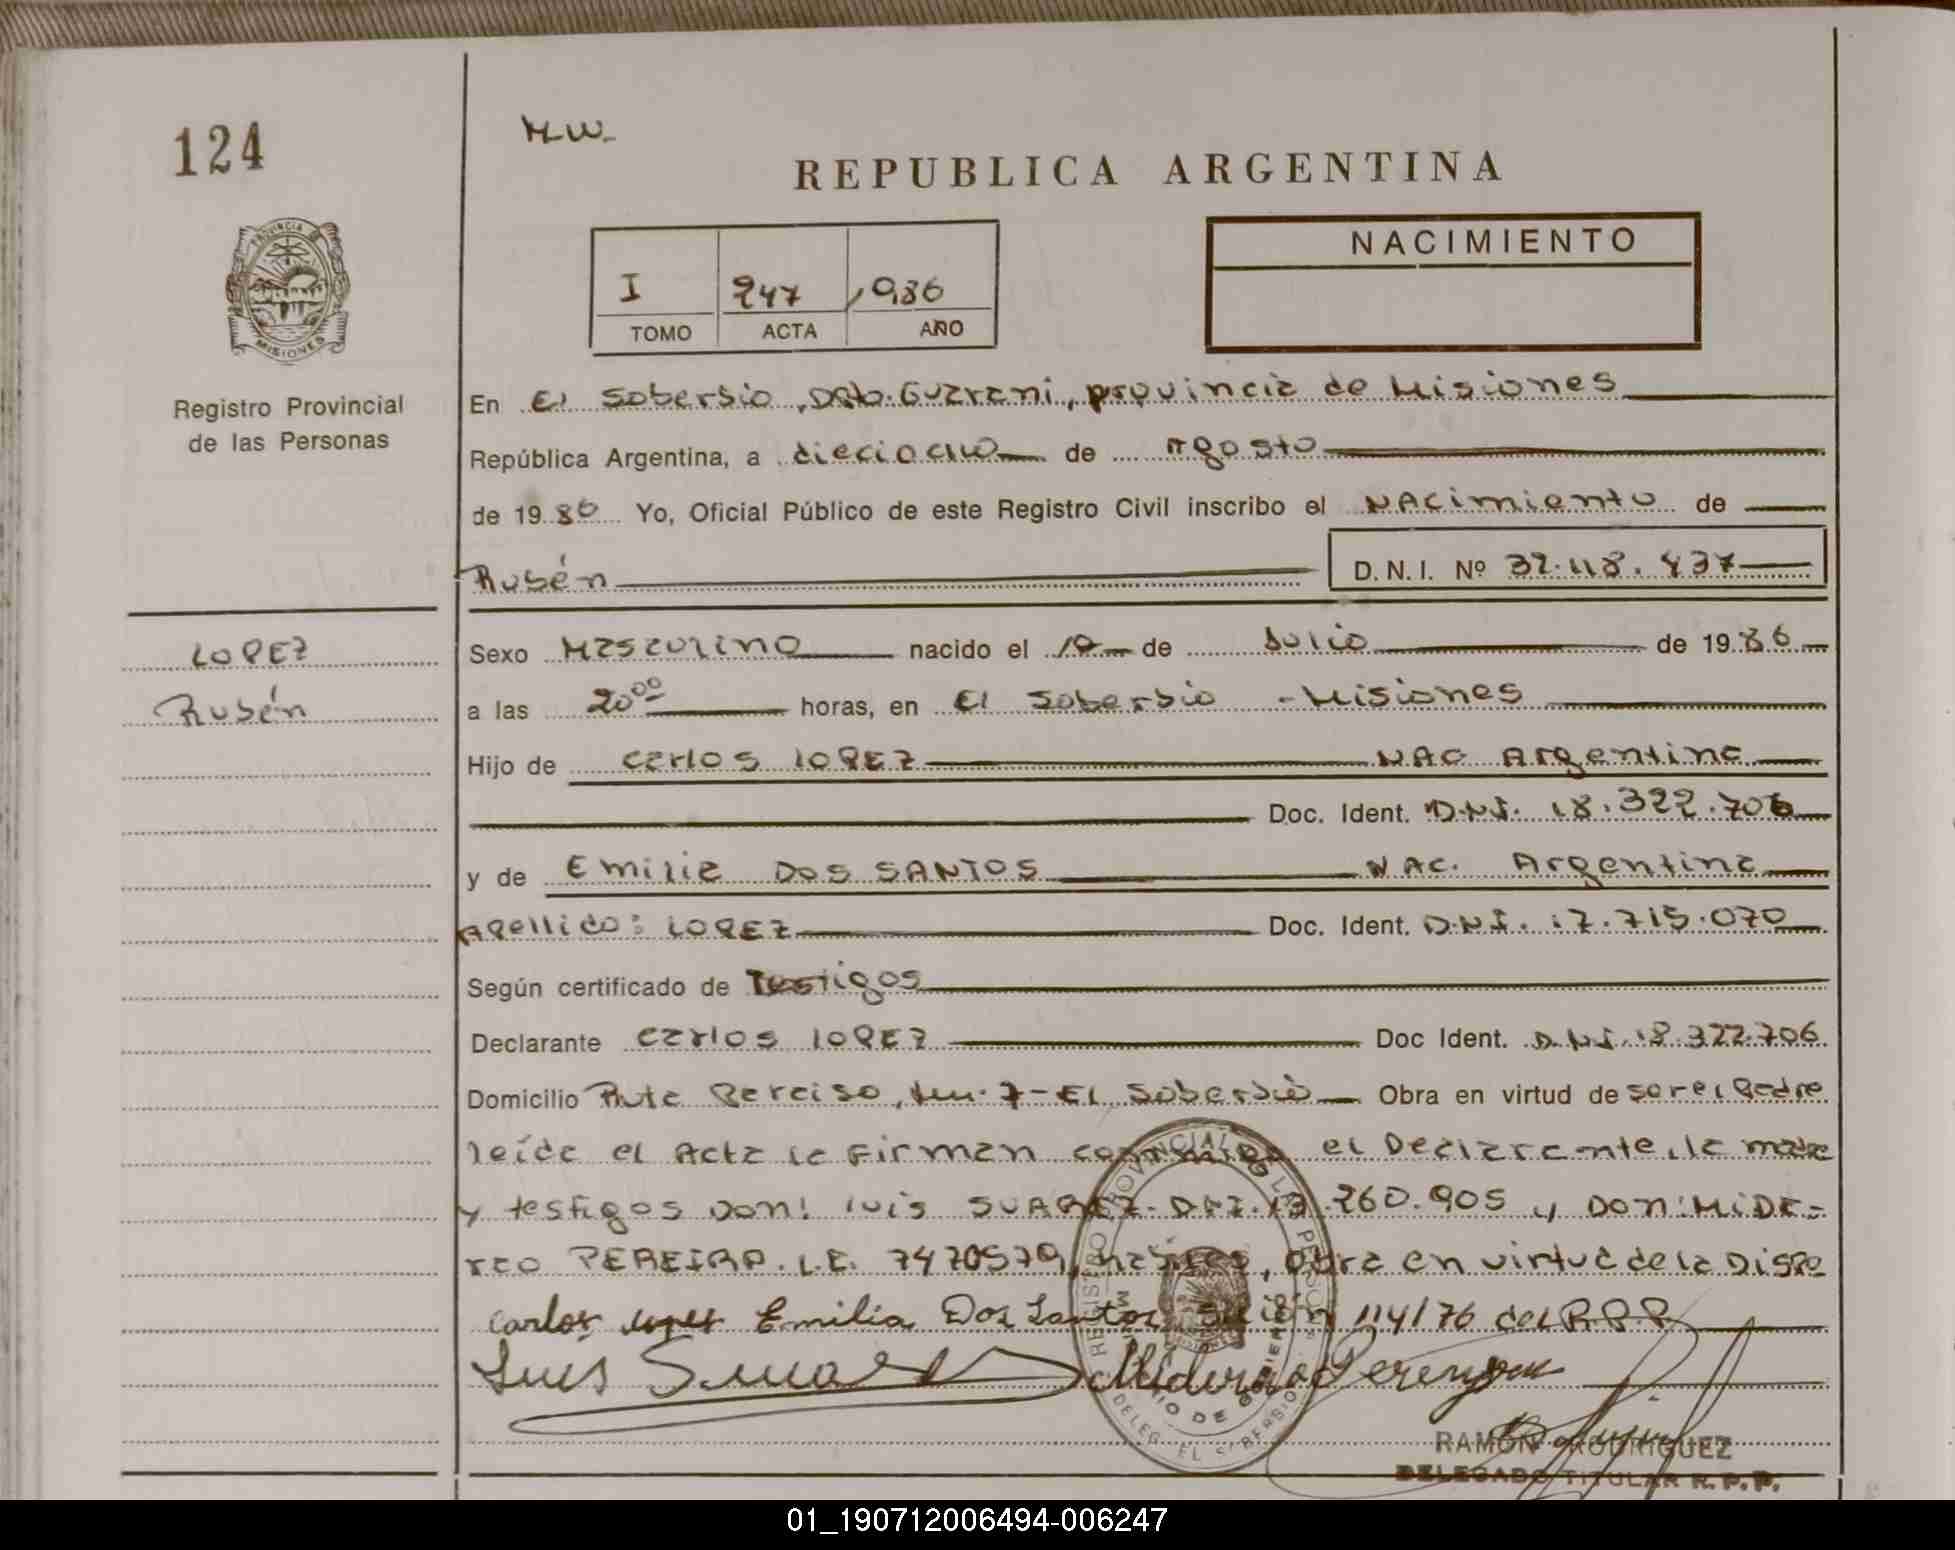 124
M.W.
REPUBLICA ARGENTINA
NACIMIENTO
I 247 1986
TOMO ACTA AÑO
PROVINCIA DE
MISIONES
Registro Provincial
de las Personas
En El Soberbio, Dpto. Guarani, provincia de Misiones
República Argentina, a dieciocho de Agosto
de 1986 Yo, Oficial Público de este Registro Civil inscribo el NAcimiento de
Rubén D.N.I. Nº 32.118.437
LOPEZ
Rubén
Sexo Masculino nacido el 10 de Julio de 1986
a las 20 00 horas, en El Soberbio - Misiones
Hijo de Carlos LOPEZ NAC Argentina
Doc. Ident. D.N.I. 18.322.706
y de Emilia DOS SANTOS NAC. Argentina
Apellido: LOPEZ Doc. Ident. D.N.I. 17.715.070
Según certificado de Testigos
Declarante Carlos LOPEZ Doc Ident. D.N.I. 18.322.706
Domicilio Ruta Km. 7 - El Soberbio Obra en virtud de ser el Padre
leída el Acta la Firman conmigo el Declarante, la madre
y testigos Don: Luis SUAREZ. D.N.I. 13.260.905 y DON: MIDE-
RCO PEREIRA. L.E. 7470579, Obra en virtud de la Dispo
Carlos Lopes Emilia Dos Santos sición 114/76 del R.P.P.
Luis Suarez
RAMON RODRIGUEZ
DELEGADO TITULAR R.P.P.
01_190712006494-006247